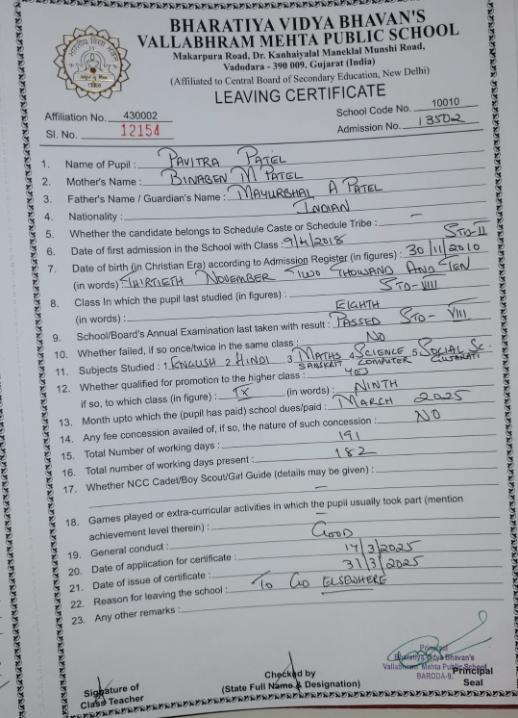 BHARATIYA VIDYA BHAVAN'S
VALLABHRAM MEHTA PUBLIC SCHOOL
Makarpura Road, Dr. Kanhaiyalal Maneklal Munshi Road,
Vadodara - 390 009. Gujarat (India)
(Affiliated to Central Board of Secondary Education, New Delhi)
LEAVING CERTIFICATE
Affiliation No. 430002 School Code No. 10010
Sl. No. 12154 Admission No. 13502
1. Name of Pupil : PAVITRA PATEL
2. Mother's Name : BINABEN M PATEL
3. Father's Name / Guardian's Name : MAYURBHAI A PATEL
4. Nationality : INDIAN
5. Whether the candidate belongs to Schedule Caste or Schedule Tribe : —
6. Date of first admission in the School with Class : 9/4/2018 STD-II
7. Date of birth (in Christian Era) according to Admission Register (in figures) : 30/11/2010
(in words) : THIRTIETH NOVEMBER TWO THOUSAND AND TEN
8. Class In which the pupil last studied (in figures) : STD-VIII
(in words) : EIGHTH
9. School/Board's Annual Examination last taken with result : PASSED STD-VIII
10. Whether failed, if so once/twice in the same class : NO
11. Subjects Studied : 1 ENGLISH 2 HINDI 3 MATHS 4 SCIENCE 5 SOCIAL SC.
SANSKRIT COMPUTER GUJARATI
12. Whether qualified for promotion to the higher class : YES
if so, to which class (in figure) : IX (in words) : NINTH
13. Month upto which the (pupil has paid) school dues/paid : MARCH 2025
14. Any fee concession availed of, if so, the nature of such concession : NO
15. Total Number of working days : 191
16. Total number of working days present : 182
17. Whether NCC Cadet/Boy Scout/Girl Guide (details may be given) :
—
18. Games played or extra-curricular activities in which the pupil usually took part (mention
achievement level therein) : —
19. General conduct : GOOD
20. Date of application for certificate : 17/3/2025
21. Date of issue of certificate : 31/3/2025
22. Reason for leaving the school : TO GO ELSEWHERE
23. Any other remarks :
Principal
Bharatiya Vidya Bhavan's
Vallabhram Mehta Public School
BARODA-9.
Signature of
Class Teacher
Checked by
(State Full Name & Designation)
Principal
Seal